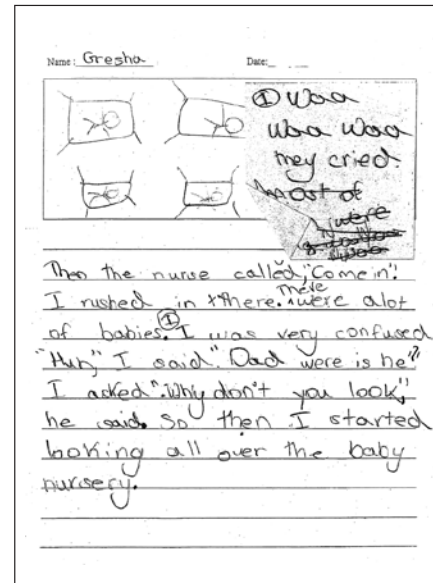 Name: Gresha Date:
① Waa
Waa Waa
they cried
most of
were
Then the nurse called, "Come in".
I rushed in + there. There were alot
of babies. ① I was very confused
"Huh," I said". Dad were is he"?
I asked". Why don't you look",
he said. So then I started
looking all over the baby
nursery.